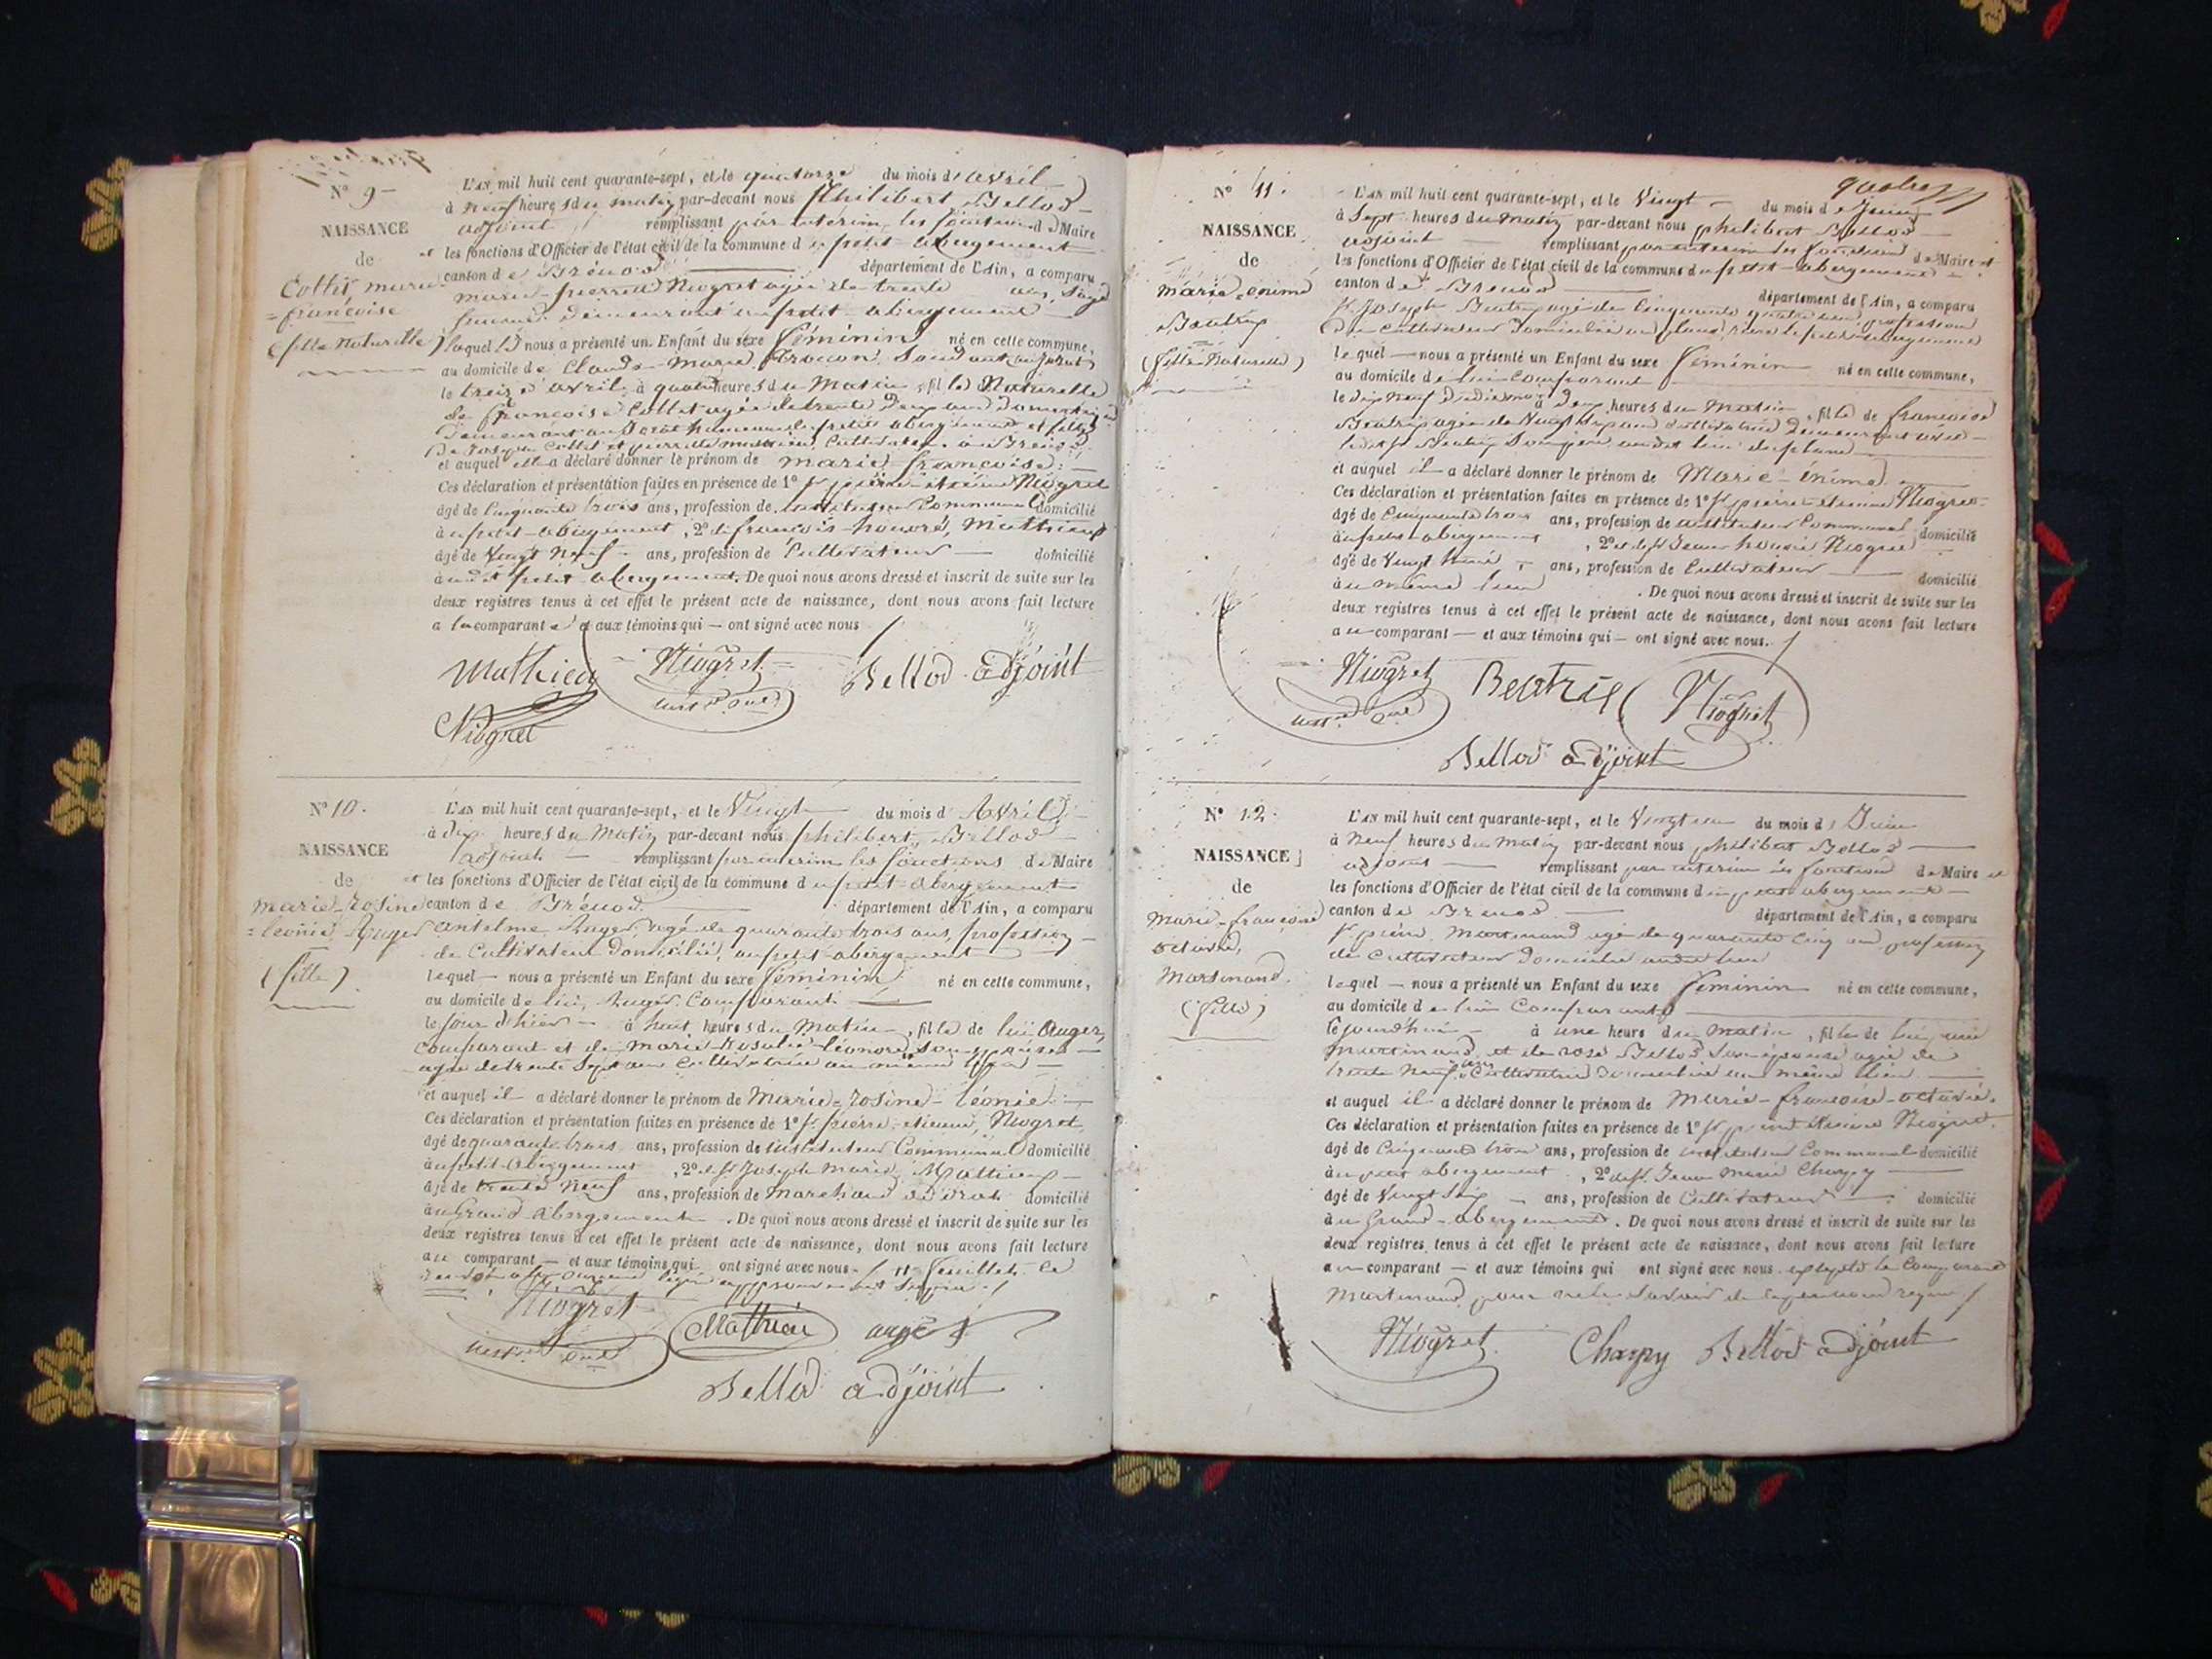 N° 9
NAISSANCE
de
Collet marie
françoise
(fille Naturelle)
L'AN mil huit cent quarante-sept, et le quatorze du mois d'avril
à neuf heures du matin par-devant nous Philibert Bellod
adjoint remplissant par interim les fonctions de Maire
et les fonctions d'Officier de l'état civil de la commune du petit-abergement
canton de Brénod département de l'Ain, a comparu
marie-pierrette Niogret agée de trente ans, sage
femme demeurant au petit-abergement
laquelle nous a présenté un Enfant du sexe féminin né en cette commune,
au domicile de Claude-Marie
le treize avril à quatre heures du Matin, fille Naturelle
de françoise Collet agée de trente deux ans
demeurant au petit abergement et fille
de Joseph Collet et pierrette cultivateurs à Brénod
et auquel elle a déclaré donner le prénom de marie françoise.
Ces déclaration et présentation faites en présence de 1° Sr pierre-étienne Niogret
âgé de Cinquante trois ans, profession de instituteur Communal domicilié
à au petit-abergement, 2° de françois-honoré, Mathieu
âgé de Vingt Neuf ans, profession de Cultivateur domicilié
à audit petit abergement. De quoi nous avons dressé et inscrit de suite sur les
deux registres tenus à cet effet le présent acte de naissance, dont nous avons fait lecture
a la comparante et aux témoins qui — ont signé avec nous
Mathieu Niogret Bellod adjoint
Niogret
N° 10.
NAISSANCE
de
marie-rosine
léonie Auger
(fille)
L'AN mil huit cent quarante-sept, et le Vingt du mois d'Avril
à dix heures du Matin par-devant nous philibert Bellod
adjoint remplissant par interim les fonctions de Maire
et les fonctions d'Officier de l'état civil de la commune du petit-abergement
canton de Brénod département de l'Ain, a comparu
Anselme Auger, agé de quarante trois ans, profession
de Cultivateur domicilié, au petit-abergement
lequel — nous a présenté un Enfant du sexe féminin né en cette commune,
au domicile de lui, Auger Comparant
le jour d'hier à huit heures du Matin, fille de lui Auger,
comparant et de marie-Rosalie-léonore son épouse
agée de trente Sept ans cultivatrice au même lieu
et auquel il a déclaré donner le prénom de Marie-rosine-léonie
Ces déclaration et présentation faites en présence de 1° Sr pierre-étienne, Niogret
âgé de quarante trois ans, profession de instituteur Communal domicilié
à au petit-abergement, 2° et Sr Joseph Marie, Mathieu
âgé de trente Neuf ans, profession de Marchand domicilié
à au Grand-abergement. De quoi nous avons dressé et inscrit de suite sur les
deux registres tenus à cet effet le présent acte de naissance, dont nous avons fait lecture
au comparant — et aux témoins qui ont signé avec nous
Niogret Mathieu auger
Bellod adjoint
quatre
N° 11.
NAISSANCE
de
Marie-énime
Beatrix
(fille Naturelle)
L'AN mil huit cent quarante-sept, et le Vingt du mois de Juin
à Sept heures du Matin par-devant nous philibert Bellod
adjoint remplissant par interim les fonctions de Maire et
les fonctions d'Officier de l'état civil de la commune du petit-abergement
canton de Brenod département de l'Ain, a comparu
Sr Joseph Beatrix agé de Cinquante quatre ans profession
de cultivateur domicilié
lequel — nous a présenté un Enfant du sexe féminin né en cette commune,
au domicile de lui Comparant
le dix neuf à deux heures du Matin, fille de françoise
Beatrix agée de Vingt Sept ans cultivatrice demeurant avec
et auquel il a déclaré donner le prénom de Marie-énime
Ces déclaration et présentation faites en présence de 1° Sr pierre-étienne Niogret
âgé de Cinquante trois ans, profession de instituteur Communal domicilié
à au petit-abergement, 2° et de Sr Jean honoré Niogret
âgé de Vingt ans, profession de Cultivateur domicilié
à au même lieu. De quoi nous avons dressé et inscrit de suite sur les
deux registres tenus à cet effet le présent acte de naissance, dont nous avons fait lecture
au comparant — et aux témoins qui — ont signé avec nous.
Niogret Beatrix Niogret
Bellod adjoint
N° 12.
NAISSANCE
de
Marie-françoise
octavie,
Martinand.
(fille)
L'AN mil huit cent quarante-sept, et le Vingt un du mois de Juin
à Neuf heures du matin par-devant nous philibert Bellod
adjoint remplissant par interim les fonctions de Maire et
les fonctions d'Officier de l'état civil de la commune du petit abergement
canton de Brenod département de l'Ain, a comparu
Sr pierre Martinand agé de quarante cinq ans profession
de Cultivateur domicilié audit lieu
lequel — nous a présenté un Enfant du sexe féminin né en cette commune,
au domicile de lui Comparant
le jourd'hui à une heure du matin, fille de lui
Martinand et de rose Bellod son épouse agée de
trente Neuf ans Cultivatrice au même lieu
et auquel il a déclaré donner le prénom de Marie-françoise-octavie.
Ces déclaration et présentation faites en présence de 1° Sr pierre étienne Niogret,
âgé de Cinquante trois ans, profession de instituteur Communal domicilié
à au petit abergement, 2° de Sr Jean Marie Charpy
âgé de Vingt Six ans, profession de Cultivateur domicilié
à au Grand-abergement. De quoi nous avons dressé et inscrit de suite sur les
deux registres tenus à cet effet le présent acte de naissance, dont nous avons fait lecture
au comparant — et aux témoins qui ont signé avec nous excepté le Comparant
Martinand pour ne le savoir de ce requis
Niogret Charpy Bellod adjoint